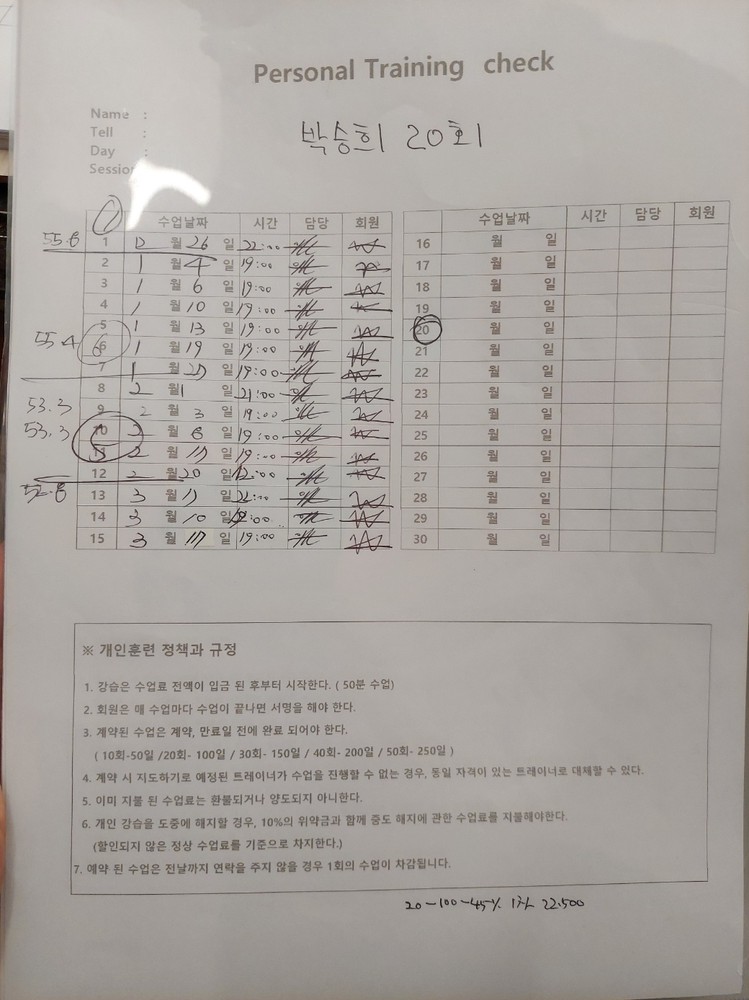 Personal Training check
Name :
Tell :
Day :
Session
박승희 20회
수업날짜 시간 담당 회원 수업날짜 시간 담당 회원
55.8 1 12 월 26 일 22:00 16 월 일
2 1 월 4 일 19:00 17 월 일
3 1 월 6 일 19:00 18 월 일
4 1 월 10 일 19:00 19 월 일
5 1 월 13 일 19:00 20 월 일
55.4 6 1 월 19 일 19:00 21 월 일
7 1 월 일 19:00 22 월 일
8 2 월 1 일 21:00 23 월 일
53.3 9 2 월 3 일 19:00 24 월 일
53.3 10 2 월 8 일 19:00 25 월 일
11 2 월 일 19:00 26 월 일
52.8 12 2 월 20 일 12:00 27 월 일
13 3 월 일 28 월 일
14 3 월 10 일 29 월 일
15 3 월 17 일 19:00 30 월 일
※ 개인훈련 정책과 규정
1. 강습은 수업료 전액이 입금 된 후부터 시작한다. ( 50분 수업)
2. 회원은 매 수업마다 수업이 끝나면 서명을 해야 한다.
3. 계약된 수업은 계약, 만료일 전에 완료 되어야 한다.
( 10회-50일 /20회- 100일 / 30회- 150일 / 40회- 200일 / 50회- 250일 )
4. 계약 시 지도하기로 예정된 트레이너가 수업을 진행할 수 없는 경우, 동일 자격이 있는 트레이너로 대체할 수 있다.
5. 이미 지불 된 수업료는 환불되거나 양도되지 아니한다.
6. 개인 강습을 도중에 해지할 경우, 10%의 위약금과 함께 중도 해지에 관한 수업료를 지불해야한다.
(할인되지 않은 정상 수업료를 기준으로 차지한다.)
7. 예약 된 수업은 전날까지 연락을 주지 않을 경우 1회의 수업이 차감됩니다.
20-100-45% 22.500